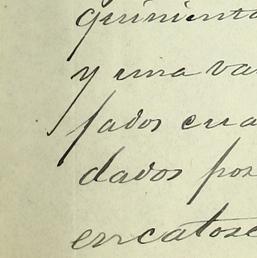 quinient
y una va
fados cua
dados pos
en catorc